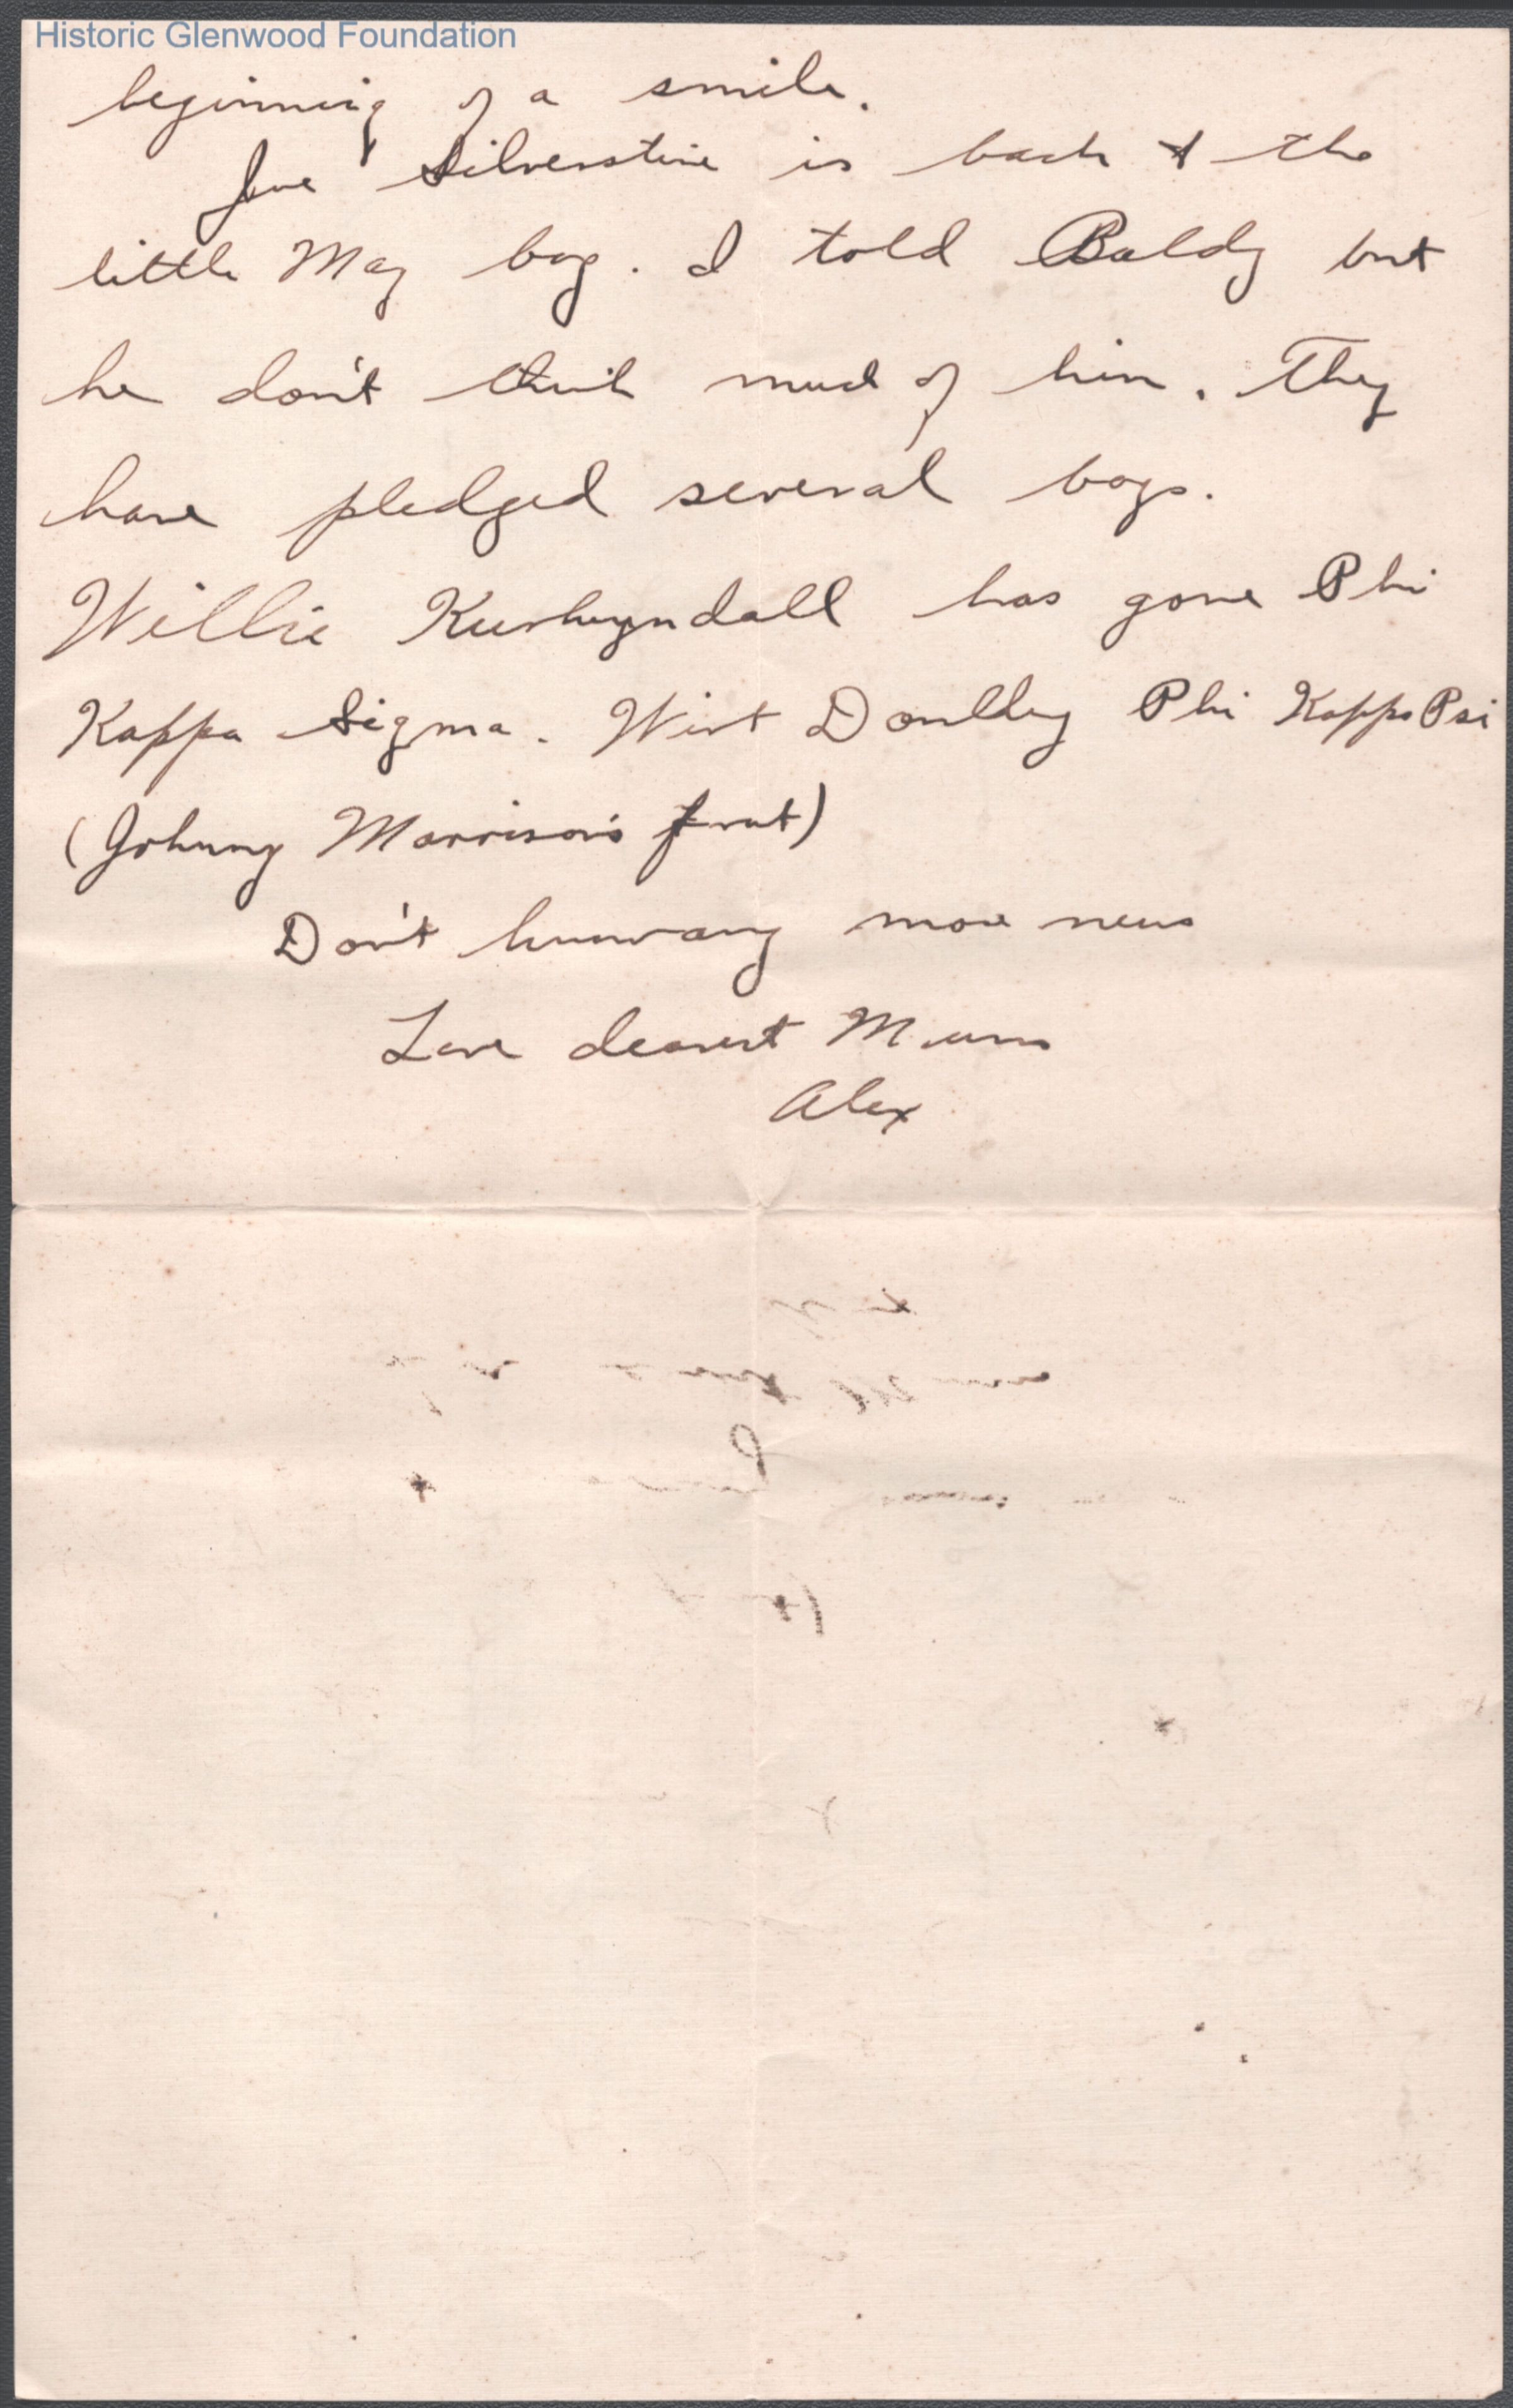 Historic Glenwood Foundation
beginning of a smile.
Joe Silverstine is back & the
little May boy. I told Baldy but
he don't think much of him. They
have pledged several boys.
Willie has gone Phi
Kappa Sigma. Wirt Phi Kappa Psi
(Johnny Morrison's frat)
Don't know any more news
Love dearest Mums
Alex